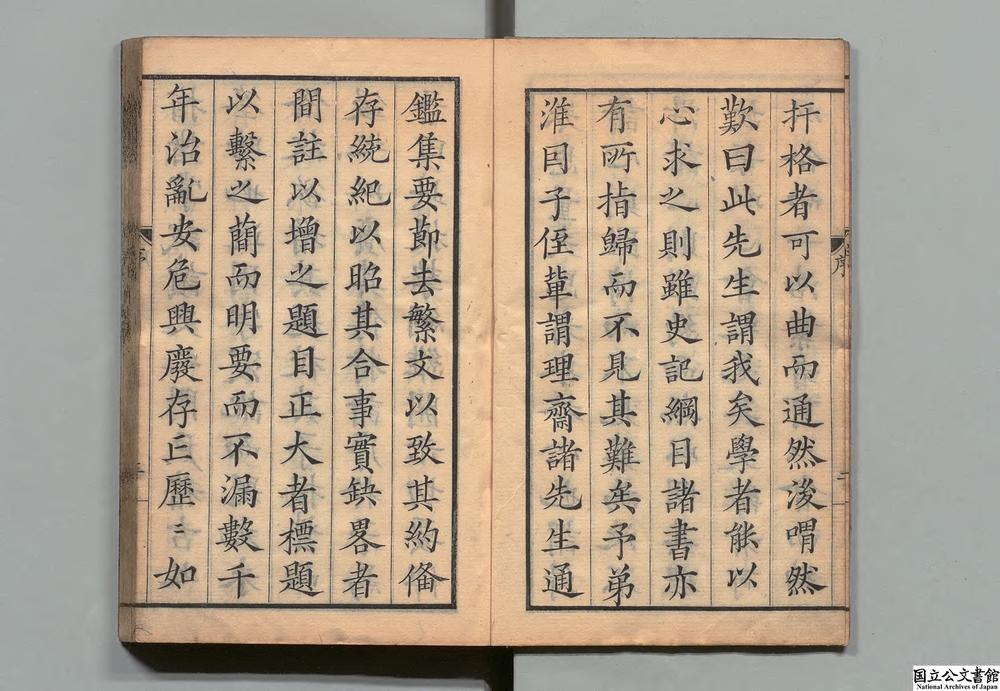 扞格者可以曲而通然後喟然
歎曰此先生謂我矣學者能以
心求之則雖史記綱目諸書亦
有所指歸而不見其難矣予弟
淮因子侄軰謂理齋諸先生通
序
二
鑑集要節去繁文以致其約俻
存統紀以昭其合事實缺畧者
間註以增之題目正大者標題
以繫之蕳而明要而不漏數千
年治亂安危興廢存亡歷〻如
序
三
国立公文書館
National Archives of Japan